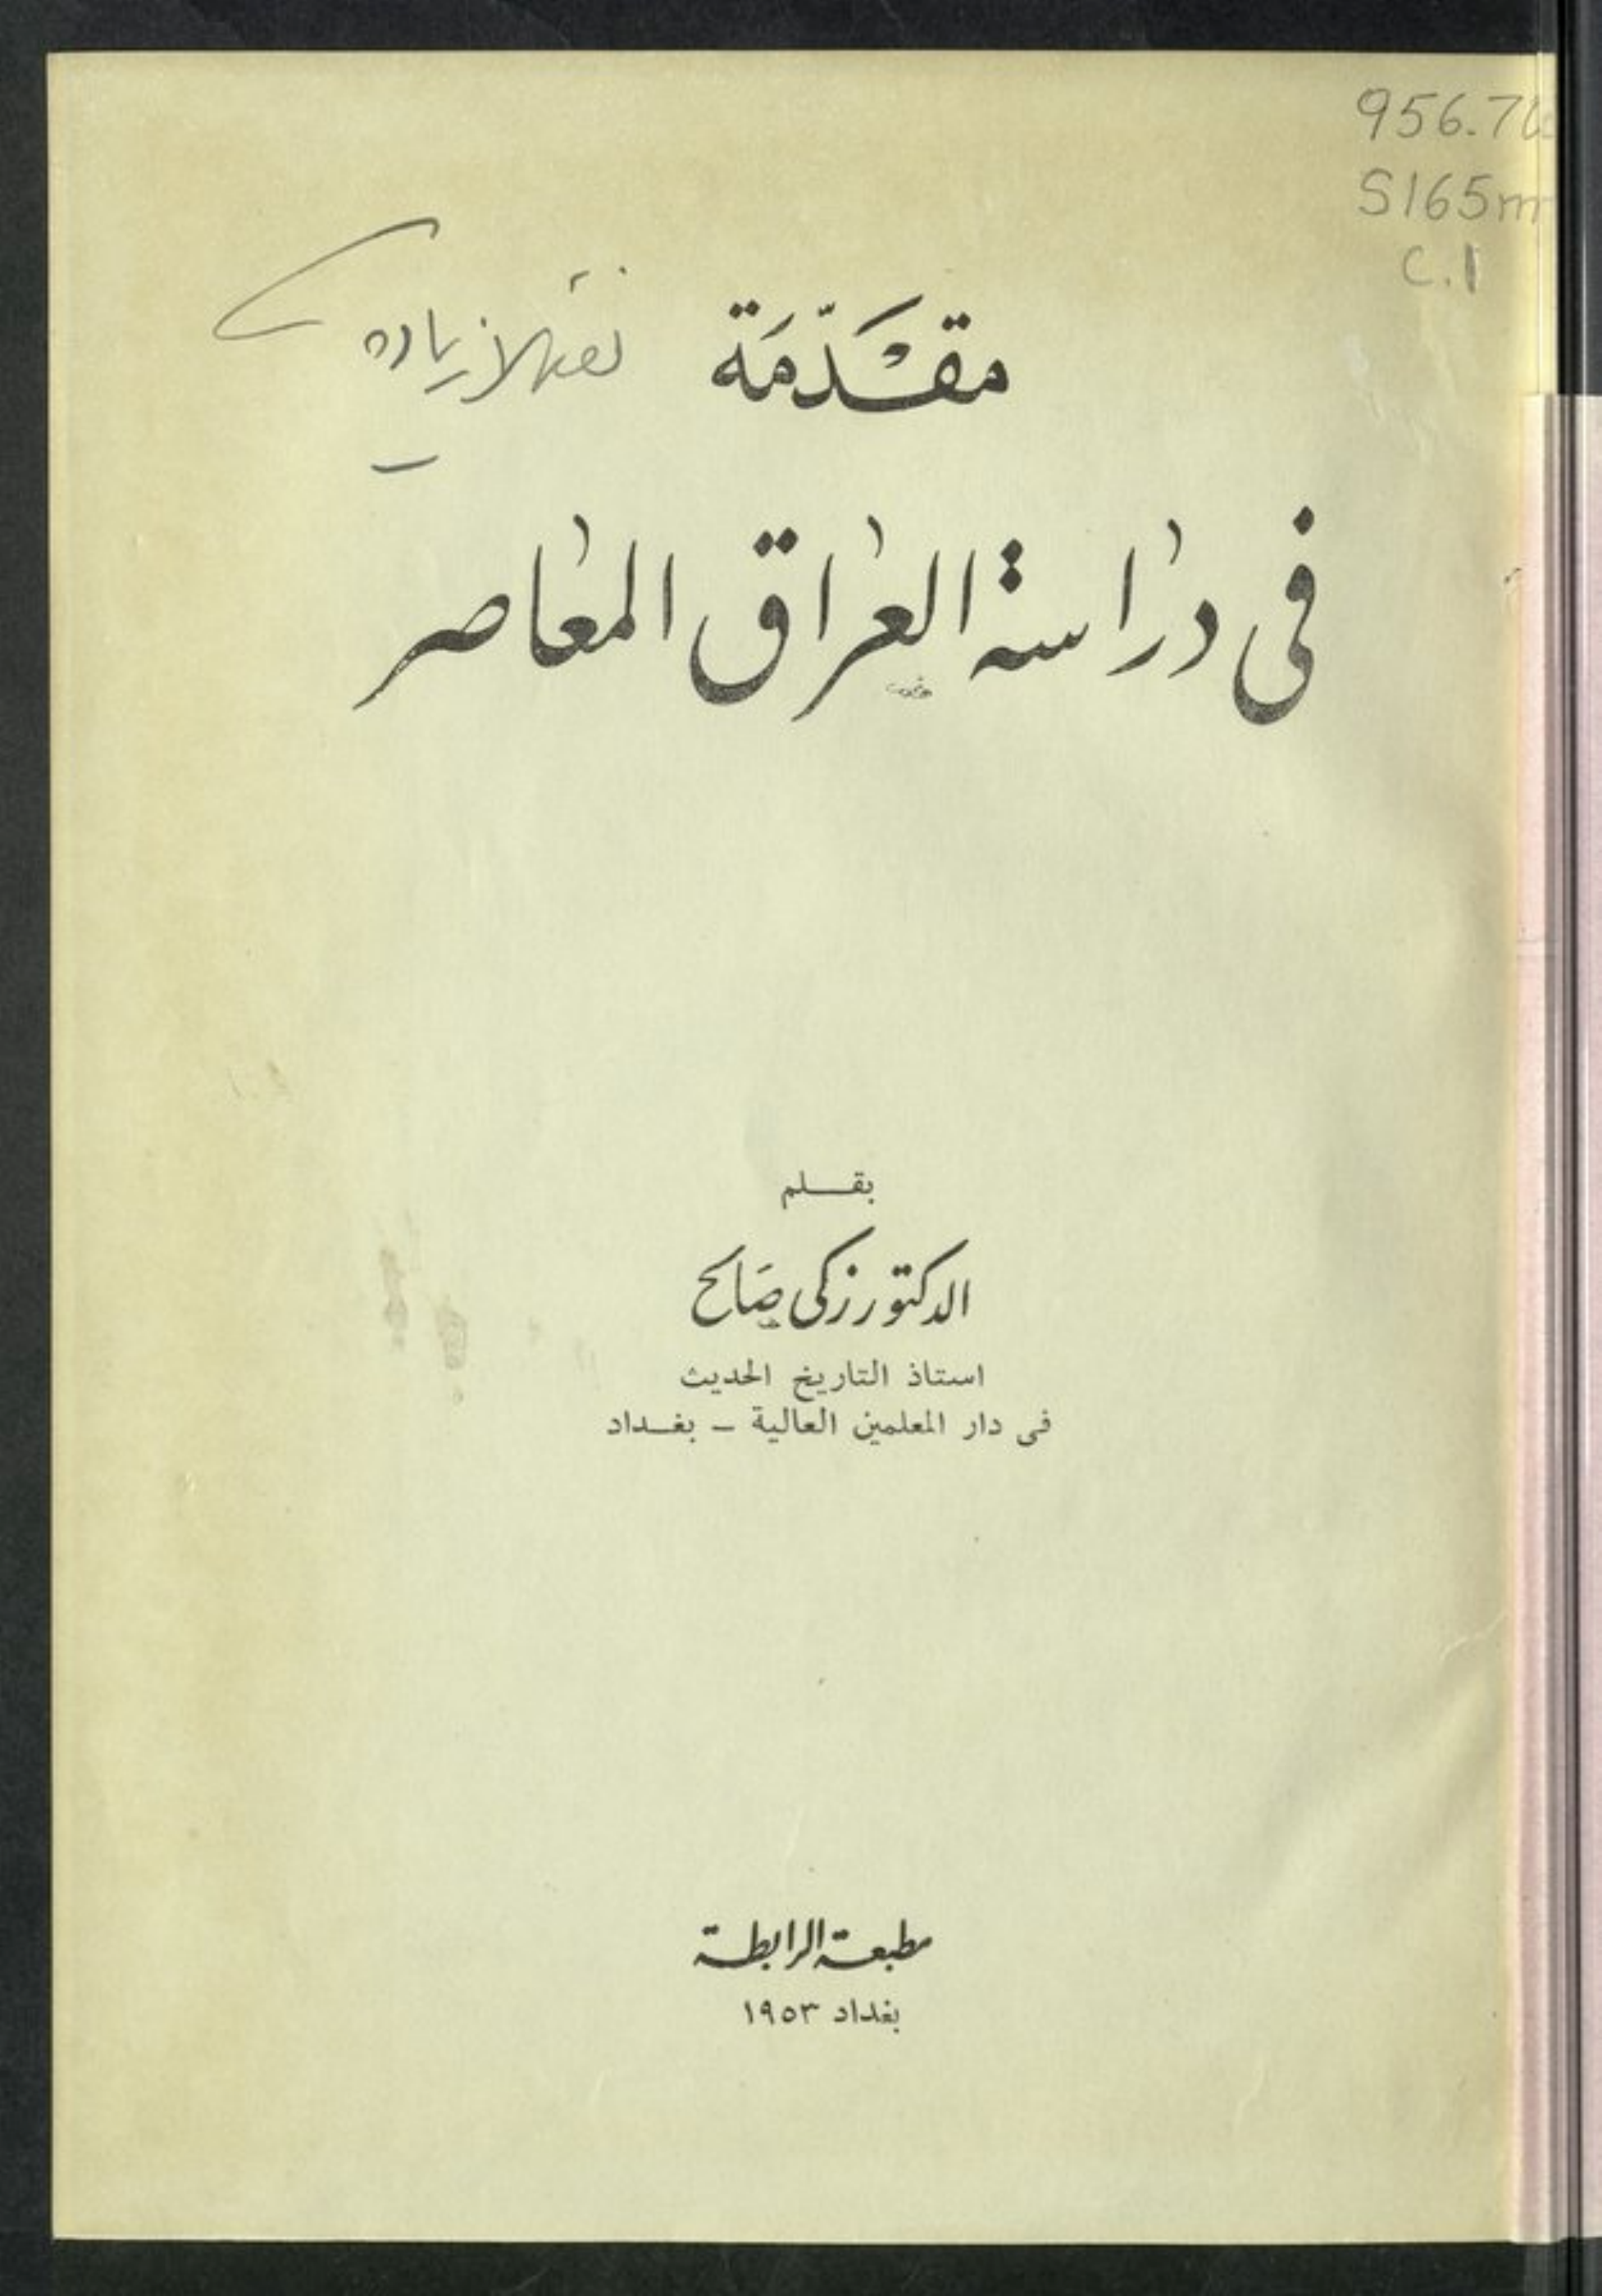 956.7
S165m
c.1
نقولا زياده
مقدّمة
فى دراسة العراق المعاصر
بقلم
الدكتور زكى صالح
استاذ التاريخ الحديث
فى دار المعلمين العالية - بغداد
مطبعة الرابطة
بغداد ١٩٥٣